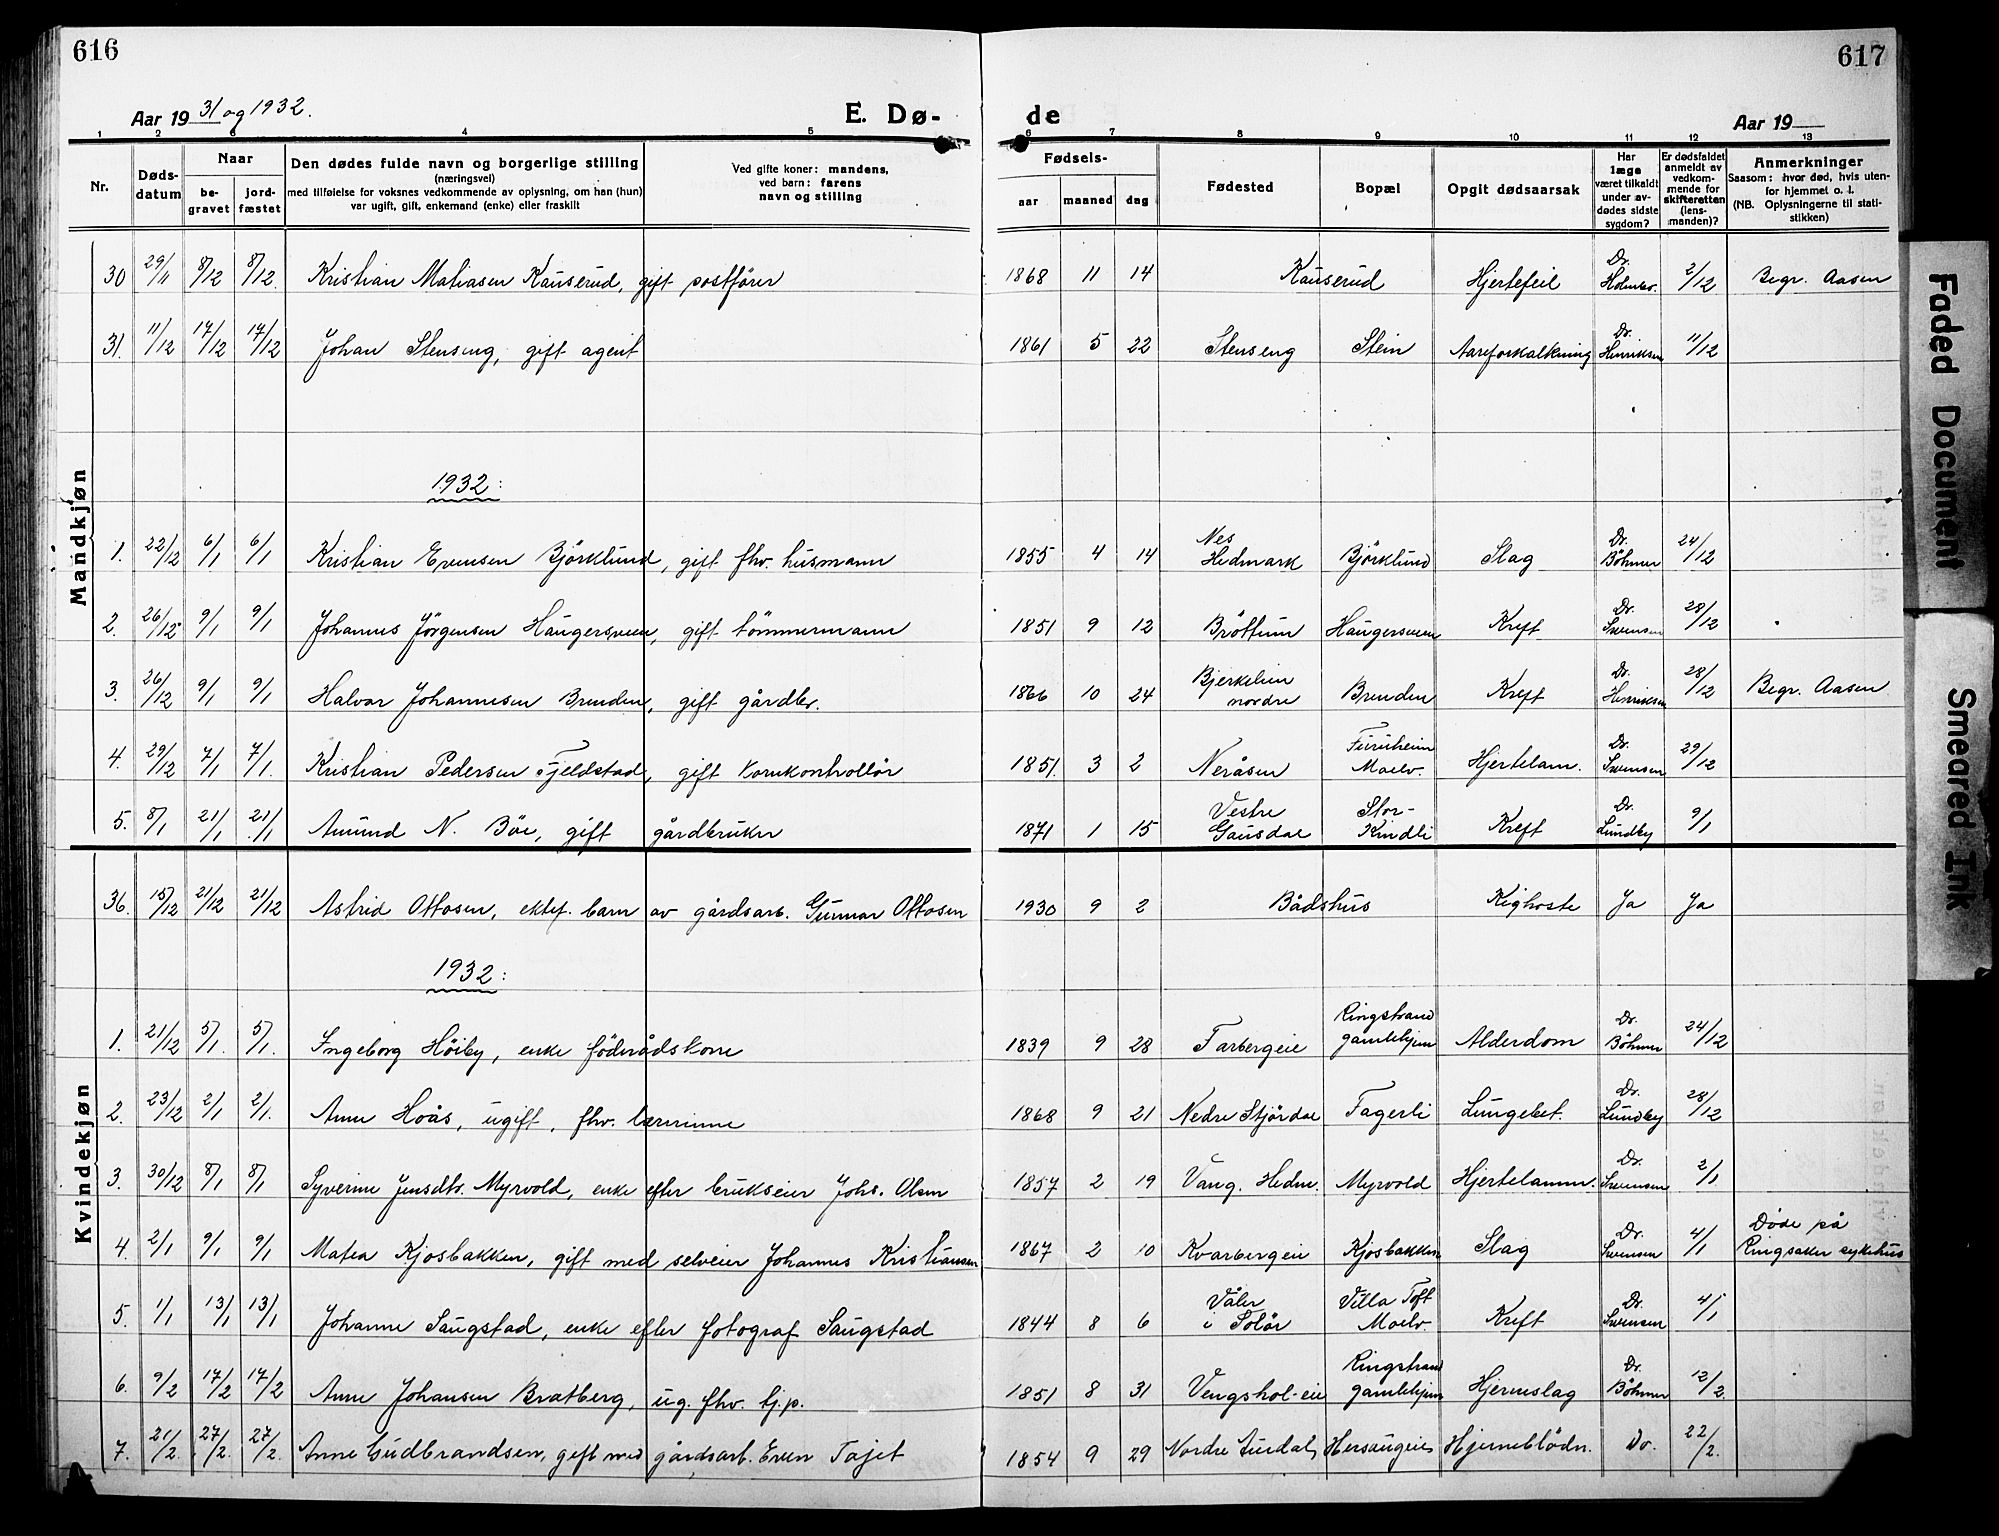 616
617
Aar 1931 og 1932.
E. Dø-
de
Aar 19
1 2 3 4 5
6 7 8 9 10 11 12 13
Nr.
Dødsdatum
Naar
begravet
jordfæstet
Den dødes fulde navn og borgerlige stilling
(næringsvei)
med tilføielse for voksnes vedkommende av oplysning, om han (hun)
var ugift, gift, enkemand (enke) eller fraskilt
Ved gifte koner: mandens,
ved barn: farens
navn og stilling
Fødsels-
aar maaned dag
Fødested
Bopæl
Opgit dødsaarsak
Har
læge
været tilkaldt
under av-
dødes sidste
sygdom?
Er dødsfaldet
anmeldt av
vedkom-
mende for
skifteretten
(lens-
manden)?
Anmerkninger
Saasom: hvor død, hvis uten-
for hjemmet o. l.
(NB. Oplysningerne til stati-
stikken)
Mandkjøn
30 29/11 8/12 8/12. Kristian Matiasen Kauserud, gift postfører 1868 11 14 Kauserud Hjertefeil Dr. Holmbo. 2/12 Begr. Aasen
31. 11/12 17/12 17/12 Johan Stenseng, gift agent 1861 5 22 Stenseng Stein Aareforkalkning Dr. Henriksen 11/12
1932:
1. 22/12 6/1 6/1 Kristian Evensen Björklund, gift fhv. husmann 1855 4 14 Nes Hedmark Björklund Slag Dr. Böhmer 24/12
2. 26/12 9/1 9/1 Johannes Jörgensen Haugersveen, gift tömmermann 1851 9 12 Bröttum Haugersveen Kreft Dr. Svensen 28/12
3. 26/12 9/1 9/1 Halvor Johannesen Brenden, gift gårdbr. 1866 10 24 Bjerkelien nordre Brenden Kreft Dr. Henriksen 28/12 Begr. Aasen
4. 29/12 7/1 7/1. Kristian Pedersen Fjeldstad, gift kornkontrollör 1851. 3 2 Neråsen Furuheim Moelv. Hjertelam. Dr. Svensen 29/12
5. 8/1 21/1 21/1 Amund N. Böe, gift gårdbruker 1871 1 15 Vestre Gausdal Stor-Kindli Kreft Dr. Lundby 9/1
Kvindekjøn
36. 15/12 21/12 21/12 Astrid Ottosen, ektef. barn av gårdsarb. Gunnar Ottosen 1930 9 2 Bådshus Kighoste Ja Ja
1932:
1. 21/12 5/1. 5/1. Ingeborg Höiby, enke föderådskone 1839 9 28 Farbergeie Ringstrand gamlehjem Alderdom Dr. Böhmer 24/12
2. 23/12 2/1 2/1. Anne Hoås, ugift, fhv. lærerinne 1868 9 21 Nedre Stjördal Fagerli Lungebet. Dr. Lundby 28/12
3. 30/12 8/1 8/1 Syverine Jensdtr. Myrvold, enke efter brukseier Johs. Olsen 1857 2 19 Vang. Hedm. Myrvold Hjertelamm. Dr. Svensen 2/1
4. 2/1 9/1 9/1 Matea Kjosbakken, gift med selveier Johannes Kristiansen 1867 2 10 Kvarbergeie Kjosbakken Slag Dr. Svensen 4/1 Döde på Ringsaker sykehus
5. 1/1 13/1 13/1 Johanne Saugstad, enke efter fotograf Saugstad 1844 8 6 Våler i Solör Villa Toft Moelv. Kreft Dr. Svensen 4/1
6. 9/2 17/2 17/2 Anne Johansen Bratberg, ug. fhv. tj.p. 1851 8 31 Vengshol-eie Ringstrand gamlehjem Hjerneslag Dr. Böhmer 12/2
7. 21/2. 27/2. 27/2. Anne Gudbrandsen, gift med gårdsarb. Even Tajet 1854 9 29 Nordre Aurdal, Hersaugeie Hjerneblödn. Do. 22/2.
Faded Document
Smeared Ink